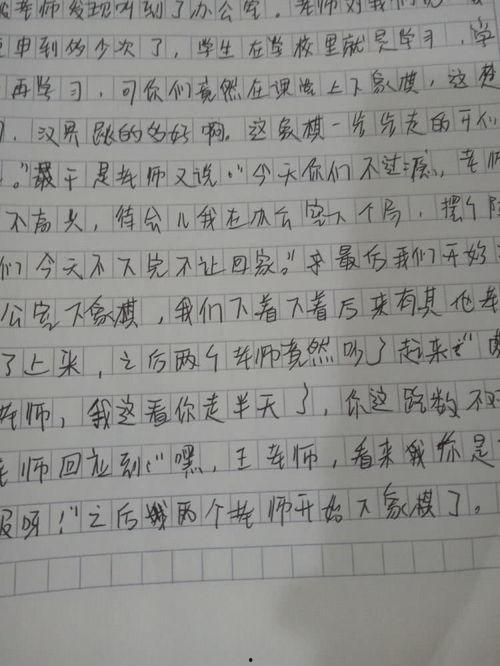 老师发现叫到了办公室。老师对我们说
申到多少次了，学生在学校里就是学习，学
再学习，可你们竟然在课堂上下象棋，这楚
汉界跳的多好啊。这象棋一步步走的开们
。”于是老师又说：“今天你们不过瘾，老师
不高兴，待会儿我在办公室下个局，摆个阵
们今天不下完不让回家。”最后我们开始
公室下象棋，我们下着下着后来有其他老
了上来，之后两个老师竟然吵了起来：“
老师，我这看你走半天了，你这路数不对
老师回应到：“嘿，王老师，看来我你是
服呀！”之后两个老师开始下象棋了。